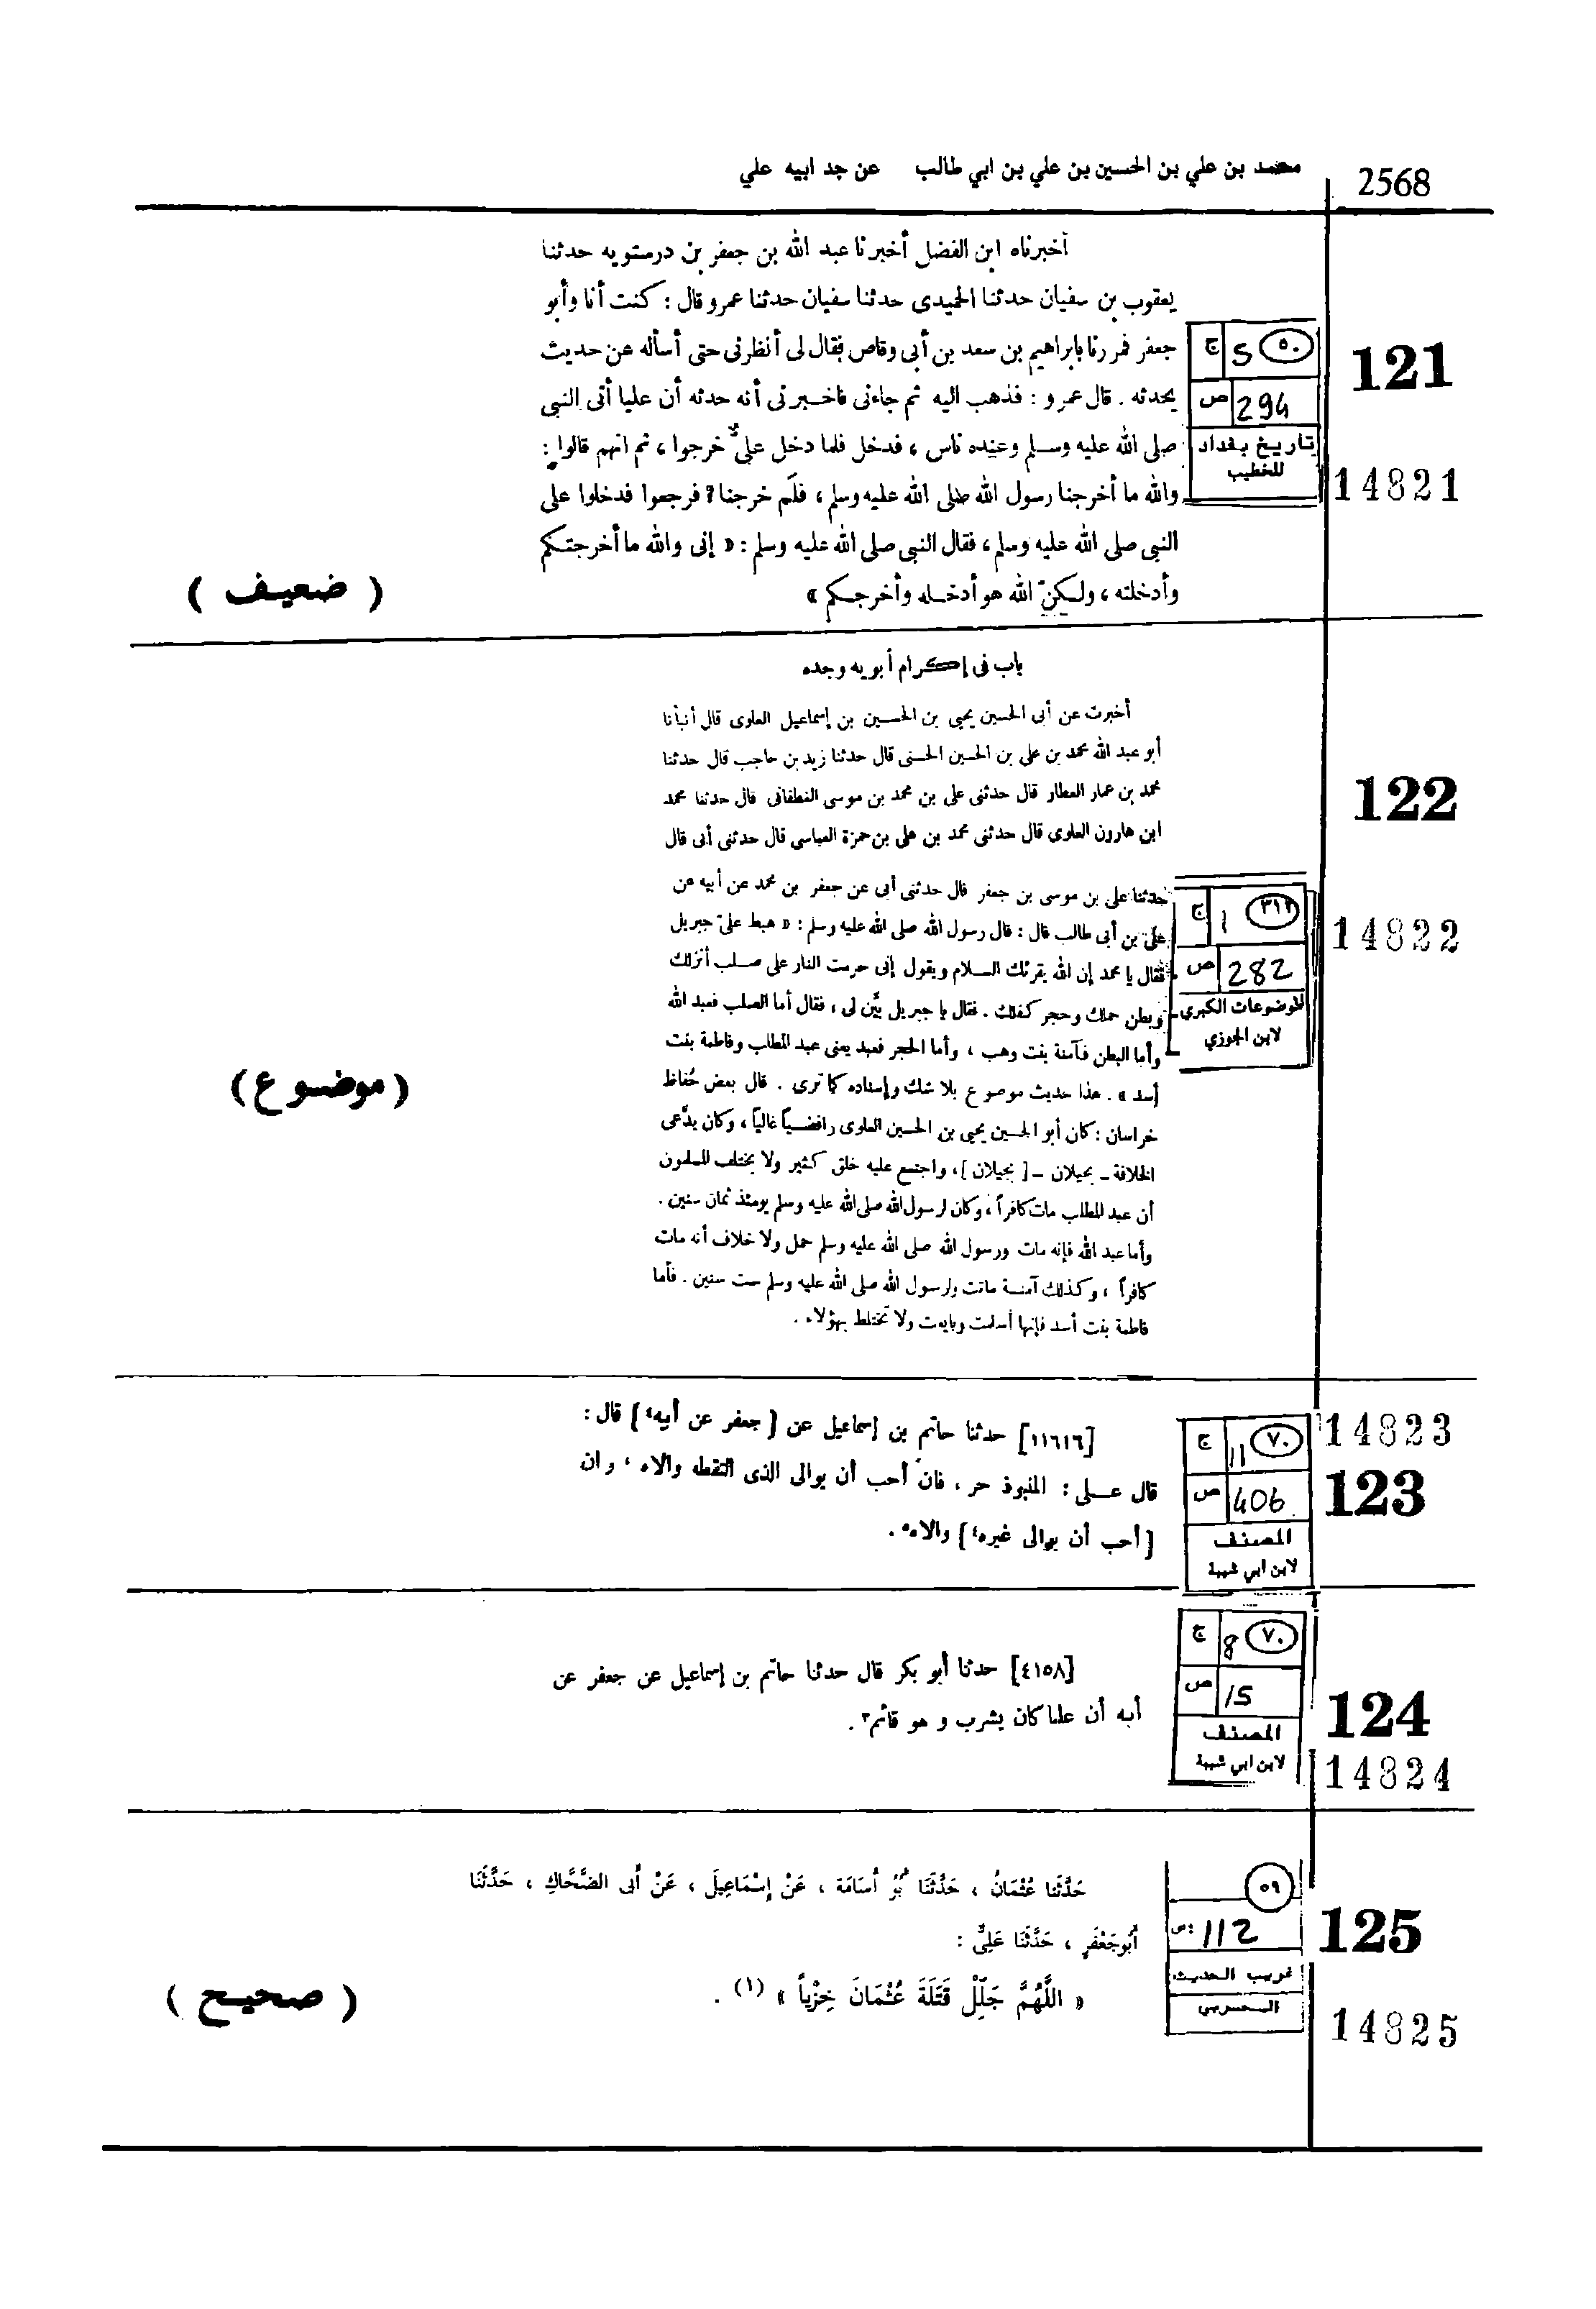 2568
محمد بن علي بن الحسين بن علي بن ابي طالب عن جد ابيه علي
أخبرناه ابن الفضل أخبرنا عبد الله بن جعفر بن درستويه حدثنا
يعقوب بن سفيان حدثنا الحميدى حدثنا سفيان حدثنا عمرو قال : كنت أنا وأبو
جعفر فمررنا بابراهيم بن سعد بن أبى وقاص فقال لى أنظرنى حتى أسأله عن حديث
يحدثه . قال عمرو : فذهب اليه ثم جاءنى فاخبرنى أنه حدثه أن عليا أتى النبى
صلى الله عليه وسلم وعنده ناس ، فدخل فلما دخل علىٌّ خرجوا ، ثم انهم قالوا :
والله ما أخرجنا رسول الله صلى الله عليه وسلم ، فلَم خرجنا ? فرجعوا فدخلوا على
النبى صلى الله عليه وسلم ، فقال النبى صلى الله عليه وسلم : « إنى والله ما أخرجتكم
وأدخلته ، ولكنّ الله هو أدخله وأخرجكم »
( ضعيف )
٥٠
5 ج
294 ص
تاريخ بغداد
للخطيب
121
14821
باب فى إكرام أبويه وجده
أخبرت عن أبى الحسين يحيى بن الحسين بن إسماعيل العلوى قال أنبأنا
أبو عبد الله محمد بن على بن الحسين الحسنى قال حدثنا زيد بن حاجب قال حدثنا
محمد بن عمار العطار قال حدثنى على بن محمد بن موسى الغطفانى قال حدثنا محمد
ابن هارون العلوى قال حدثنى محمد بن على بن حمزة العباسى قال حدثنى أبى قال
حدثنا على بن موسى بن جعفر قال حدثنى أبى عن جعفر بن محمد عن أبيه عن
على بن أبى طالب قال : قال رسول الله صلى الله عليه وسلم : « هبط علىّ جبريل
فقال يا محمد إن الله يقرئك السلام ويقول إنى حرمت النار على صلب أنزلك
وبطن حملك وحجر كفلك . فقال يا جبريل بيّن لى ، فقال أما الصلب فعبد الله
وأما البطن فآمنة بنت وهب ، وأما الحجر فعبد يعنى عبد المطلب وفاطمة بنت
أسد » . هذا حديث موضوع بلا شك وإسناده كما ترى . قال بعض حُفاظ
خراسان : كان أبو الحسين يحيى بن الحسين العلوى رافضياً غالياً ، وكان يدَّعى
الخلافة ـ بجيلان ـ [ بجيلان ] ، واجتمع عليه خلق كثير ولا يختلف المسلمون
أن عبد المطلب مات كافراً ، وكان لرسول الله صلى الله عليه وسلم يومئذ ثمان سنين .
وأما عبد الله فإنه مات ورسول الله صلى الله عليه وسلم حمل ولا خلاف أنه مات
كافراً ، وكذلك آمنة ماتت ولرسول الله صلى الله عليه وسلم ست سنين . فأما
فاطمة بنت أسد فإنها أسلمت وبايعت ولا تختلط بهؤلاء .
(موضوع)
1 ج
282 ص
الموضوعات الكبرى
لابن الجوزي
122
14822
[١١٦١٦] حدثنا حاتم بن إسماعيل عن [ جعفر عن أبيه٤ ] قال :
قال عـلى : المنبوذ حر ، فان أحب أن يوالى الذى التقطه والاه ، وان
[ أحب أن يوالى غيره٤ ] والاه٥ .
٧٠
11 ج
406 ص
المصنف
لابن ابي شيبة
14823
123
[٤١٥٨] حدثنا أبو بكر قال حدثنا حاتم بن إسماعيل عن جعفر عن
أبيه أن عليا كان يشرب و هو قائم٣ .
٧٠
8 ج
15 ص
المصنف
لابن ابي شيبة
124
14824
حَدَّثَنا عُثْمَانُ ، حَدَّثَنَا أَبُو أُسَامَة ، عَنْ إِسْمَاعِيلَ ، عَنْ أَبى الضَّحَّاكِ ، حَدَّثَنَا
أَبُو جَعْفَرٍ ، حَدَّثَنَا عَلِىٌّ :
« اللَّهُمَّ جَلِّلْ قَتَلَةَ عُثْمَانَ خِزْياً » (١) .
( صحيح )
٥٩
112 ص:
غريب الحديث
الحربي
125
14825